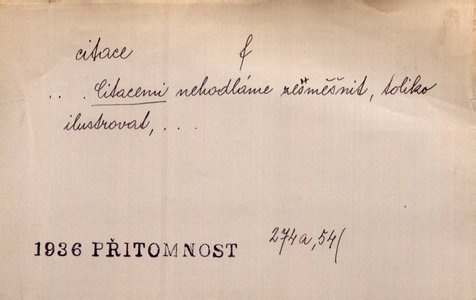 citace f
. . . Citacemi nehodláme zesměšnit, toliko
ilustrovat, . . .
1936 PŘITOMNOST 274a, 54/